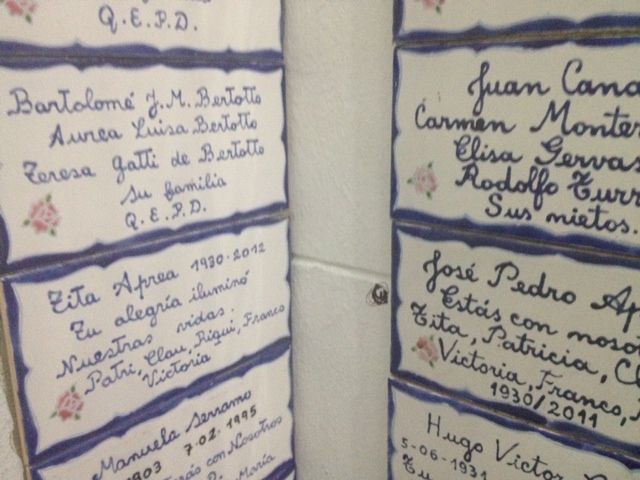 Q.E.P.D.
Bartolomé J.M. Bertotto
Aurea Luisa Bertotto
Teresa Gatti de Bertotto
Su familia
Q.E.P.D.
Tita Aprea 1930-2012
Tu alegria iluminó
Nuestras vidas.
Patri, Clau, Riqui, Franco
Victoria
Manuela Serramo
1903 7-02-1995
con Nosotros
María
Juan
Carmen
Elisa
Rodolfo
Sus nietos.
José Pedro
Estás con
Tita, Patricia,
Victoria, Franco,
1930/2011
Hugo Victor
5-06-1931
Tu